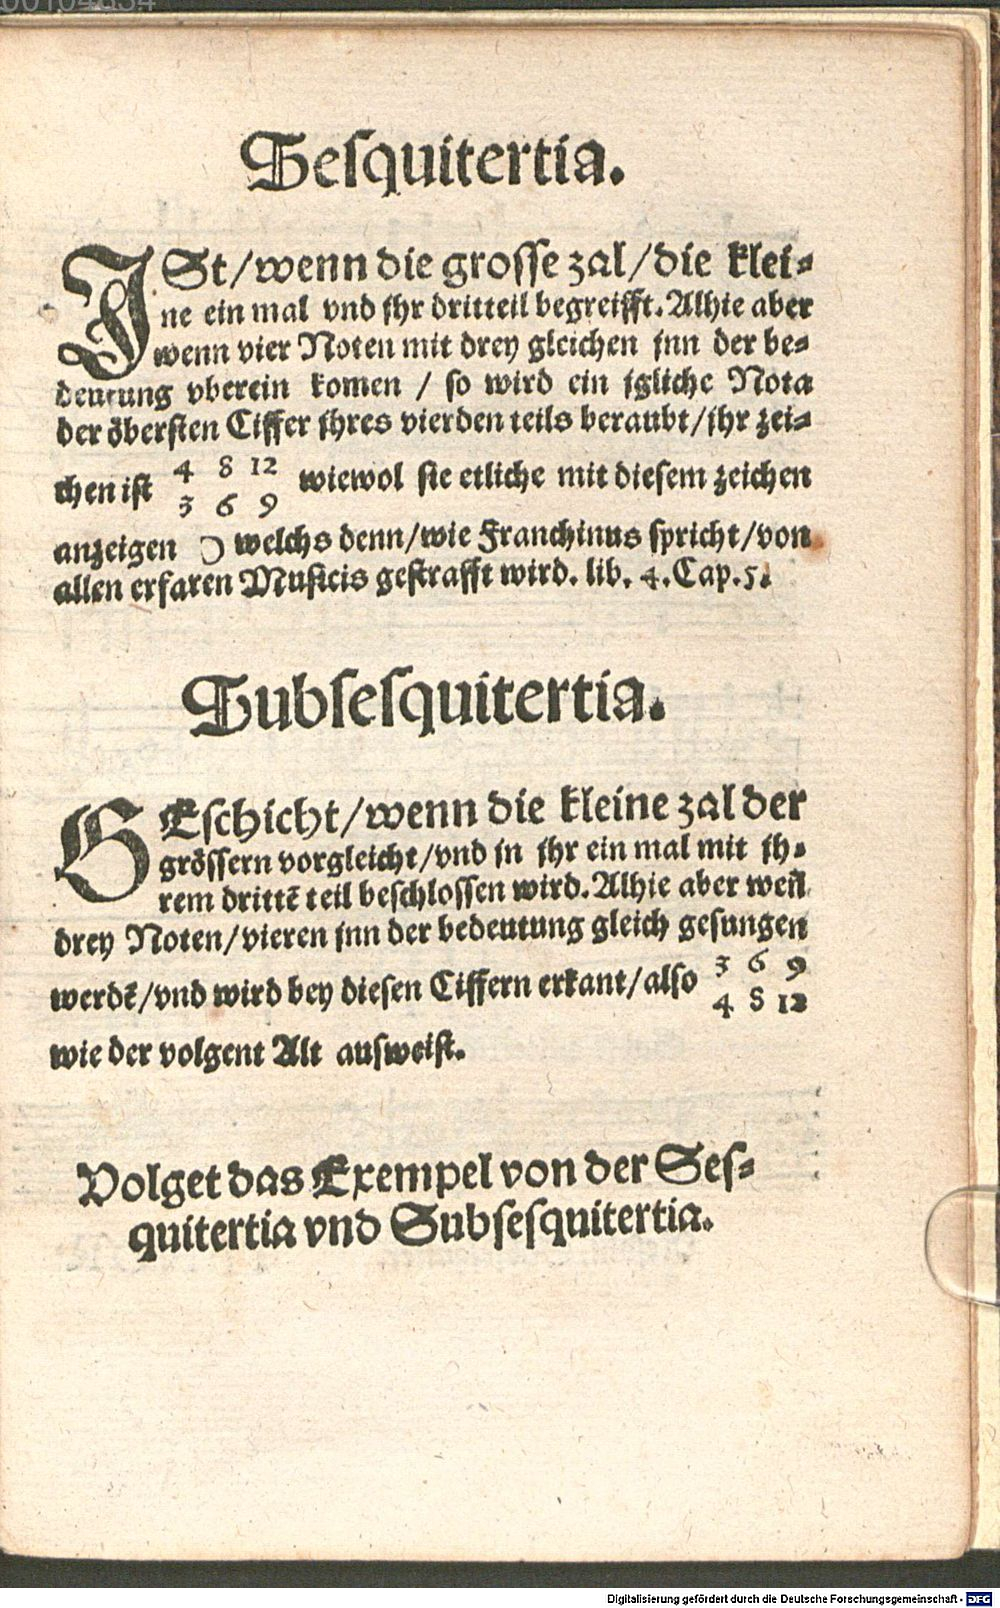 00104834
Sesquitertia.
ISt/wenn die grosse zal/die klei⸗
ne ein mal vnd jhr dritteil begreifft. Alhie aber
wenn vier Noten mit drey gleichen jnn der be⸗
deutung vberein komen / so wird ein jgliche Nota
der öbersten Ciffer jhres vierden teils beraubt/jhr zei⸗
4 8 12
chen ist wiewol sie etliche mit diesem zeichen
3 6 9
anzeigen Ɔ welchs denn/wie Franchinus spricht/von
allen erfaren Musicis gestrafft wird. lib. 4. Cap. 5.
Subsesquitertia.
GEschicht/wenn die kleine zal der
grössern vorgleicht/vnd jn jhr ein mal mit jh⸗
rem drittē teil beschlossen wird. Alhie aber weñ
drey Noten/vieren jnn der bedeutung gleich gesungen
3 6 9
werdē/vnd wird bey diesen Ciffern erkant/also
4 8 12
wie der volgent Alt ausweist.
Volget das Exempel von der Ses⸗
quitertia vnd Subsesquitertia.
Digitalisierung gefördert durch die Deutsche Forschungsgemeinschaft - DFG